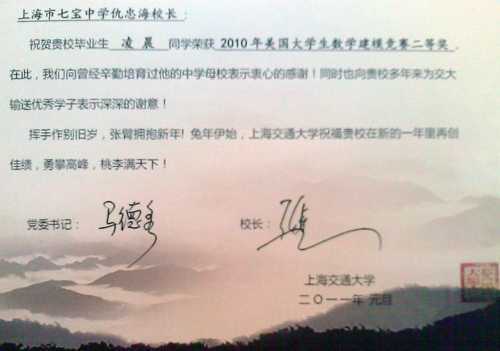 上海市七宝中学仇忠海校长：
祝贺贵校毕业生 凌晨 同学荣获 2010年美国大学生数学建模竞赛二等奖。
在此，我们向曾经辛勤培育过他的中学母校表示衷心的感谢！同时也向贵校多年来为交大
输送优秀学子表示深深的谢意！
挥手作别旧岁，张臂拥抱新年！兔年伊始，上海交通大学祝福贵校在新的一年里再创
佳绩，勇攀高峰，桃李满天下！
党委书记： 马德秀 校长：
上海交通大学
二〇一一年 元旦